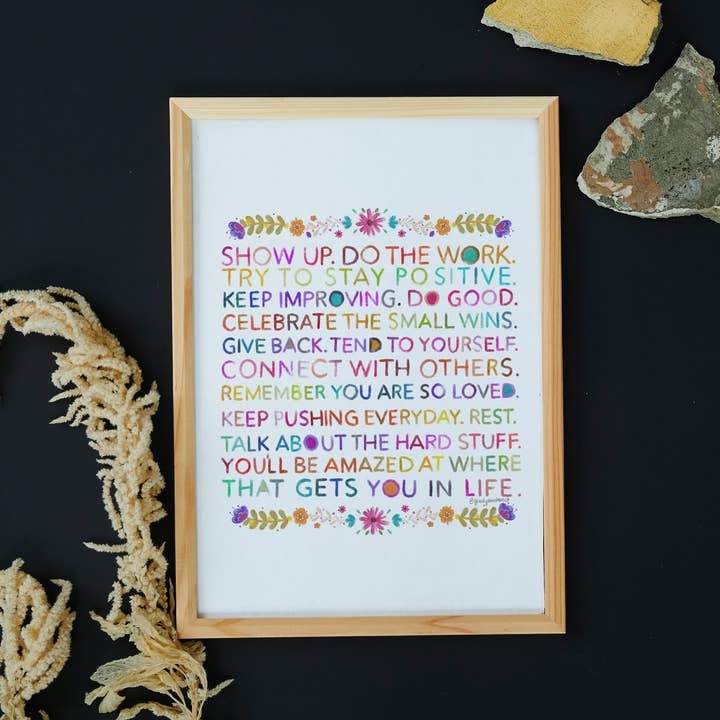 SHOW UP. DO THE WORK.
TRY TO STAY POSITIVE.
KEEP IMPROVING. DO GOOD.
CELEBRATE THE SMALL WINS.
GIVE BACK. TEND TO YOURSELF.
CONNECT WITH OTHERS.
REMEMBER YOU ARE SO LOVED.
KEEP PUSHING EVERYDAY. REST.
TALK ABOUT THE HARD STUFF.
YOU'LL BE AMAZED AT WHERE
THAT GETS YOU IN LIFE.